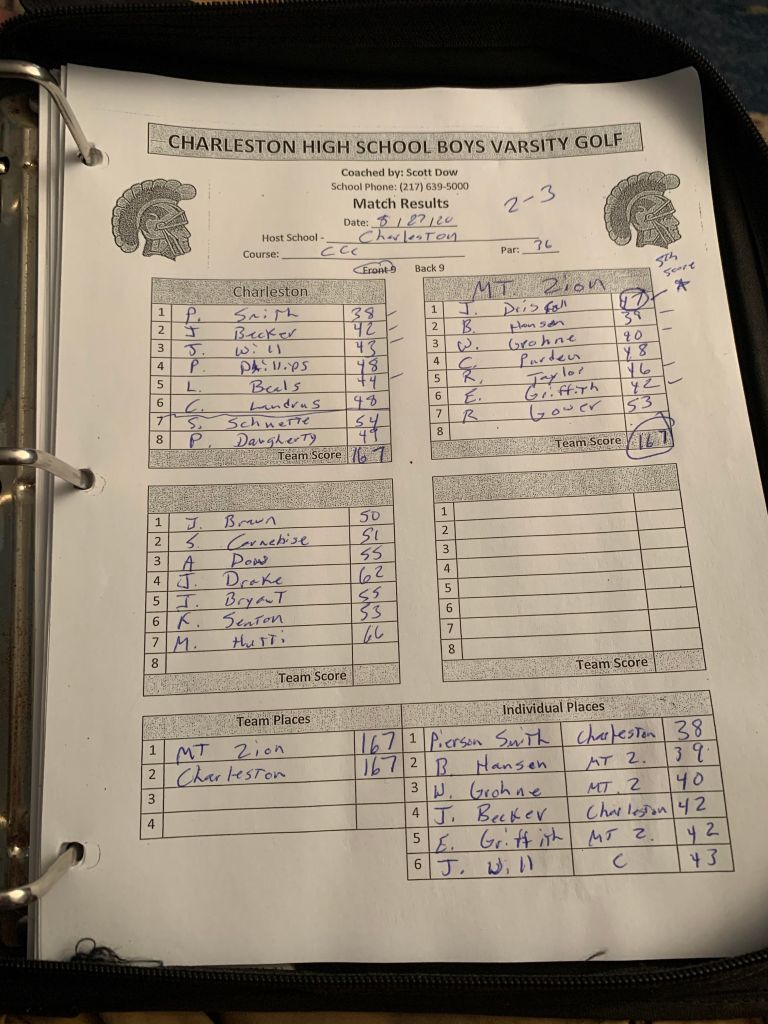 CHARLESTON HIGH SCHOOL BOYS VARSITY GOLF
Coached by: Scott Dow
School Phone: (217) 639-5000
Match Results
2-3
Date: 8/27/20
Host School - Charleston
Course: CCC Par: 36
Front 9 Back 9
5th score *
Charleston
1 P. Smith 38
2 J Becker 42
3 J. Will 43
4 P. Phillips 48
5 L. Beals 44
6 C. Landrus 48
7 S. Schuette 54
8 P. Daugherty 49
Team Score 167
MT. Zion
1 J. Driscoll 47
2 B. Hansen 39
3 W. Grohne 40
4 C. Purden 48
5 R. Taylor 46
6 E. Griffith 42
7 R Gower 53
8
Team Score 167
1 J. Braun 50
2 S. Carnebise 51
3 A Dow 55
4 J. Drake 62
5 J. Bryant 55
6 K. Senton 53
7 M. Hutti 66
8
Team Score
1
2
3
4
5
6
7
8
Team Score
Team Places
1 MT Zion 167
2 Charleston 167
3
4
Individual Places
1 Pierson Smith Charleston 38
2 B. Hansen MT Z. 39
3 W. Grohne MT. Z 40
4 J. Becker Charleston 42
5 E. Griffith MT Z. 42
6 J. Will C 43